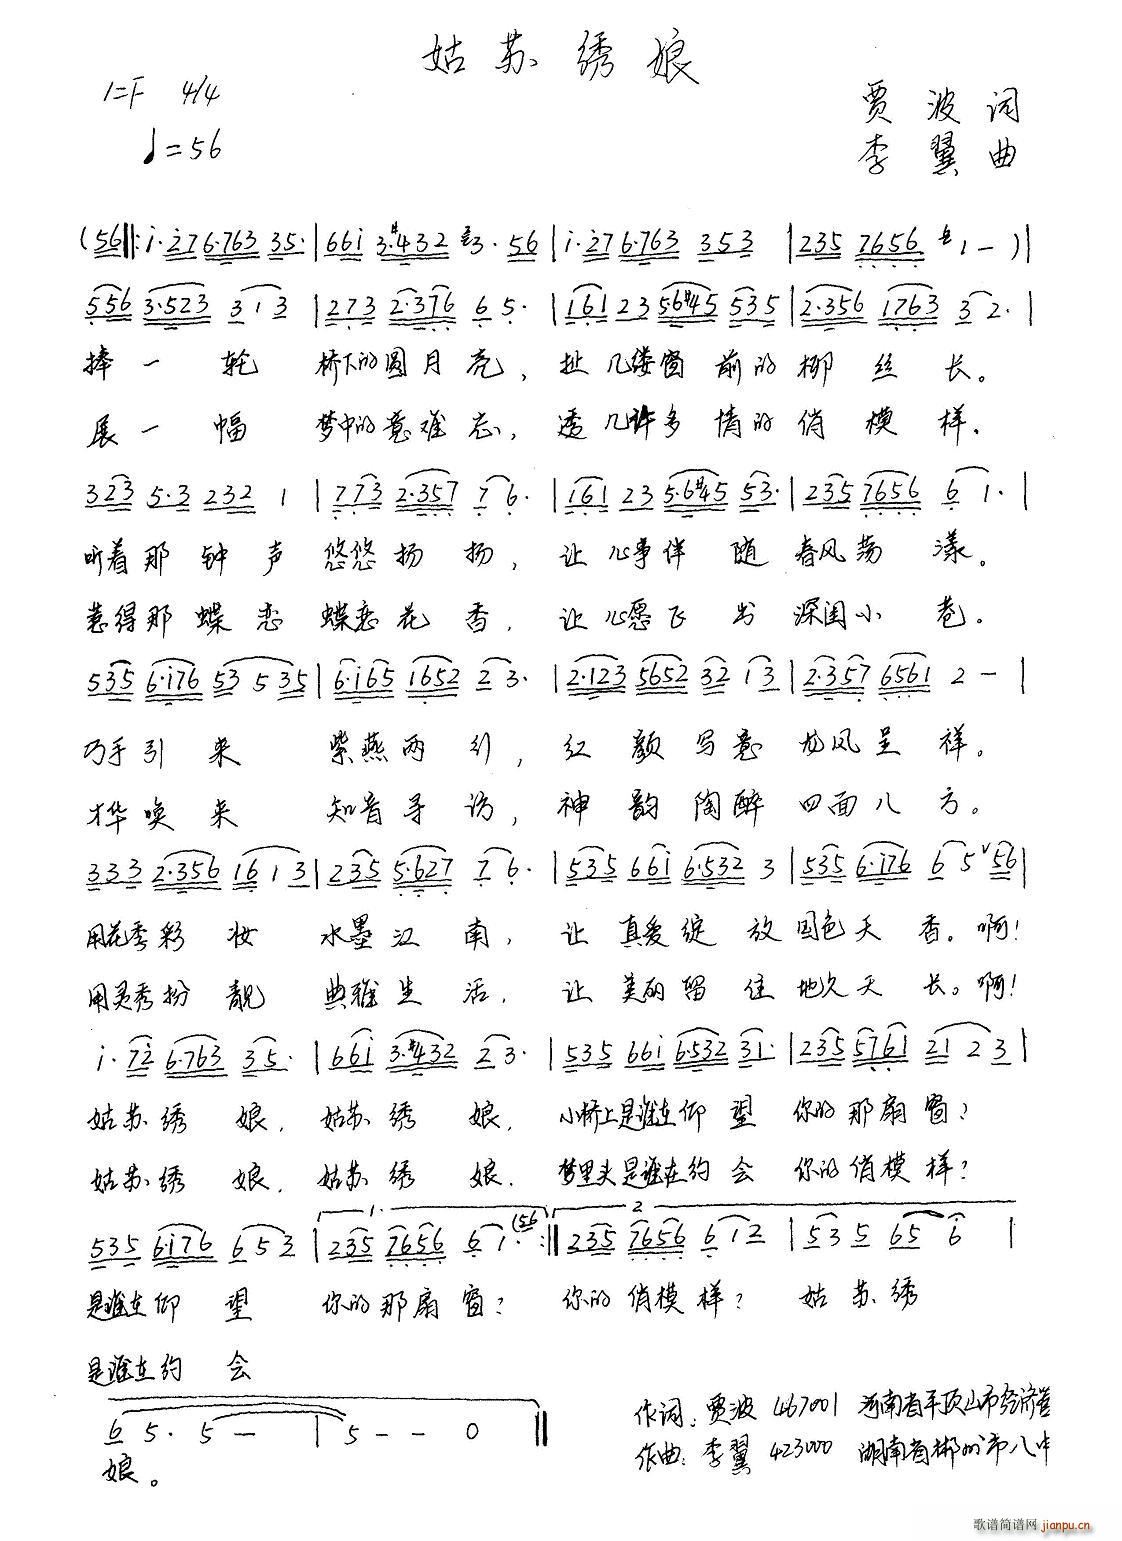 姑苏绣娘
1=F 4/4
♩=56
贾波词
李翼曲
(56‖: i·276·763 35·|66i 3·#432 3·56|i·276·763 353|235 7656 1-)|
556 3·523 313|273 2·376 65·|161 23 56#45 535|2·356 1763 32·|
捧一轮 桥下的圆月亮，扯几缕窗前的柳丝长。
展一幅 梦中的意难忘，透几许多情的俏模样。
323 5·3 232 1|773 2·357 76·|161 23 5·6#45 53·|235 7656 61·|
听着那钟声悠悠扬扬，让心事伴随春风荡漾。
惹得那蝶恋蝶恋花香，让心愿飞出深闺小巷。
535 6·i76 53 535|6·i65 1652 23·|2·123 5652 32 13|2·357 6561 2-|
巧手引来 紫燕两行，红颜写意龙凤呈祥。
才华唤来 知音寻访，神韵陶醉四面八方。
333 2·356 16 13|235 5·627 76·|535 66i 6·532 3|535 6·i76 65ˇ56|
用花季彩妆 水墨江南，让真爱绽放国色天香。啊！
用灵秀扮靓 典雅生活，让美丽留住地久天长。啊！
i·7i 6·763 35·|66i 3·#432 23·|535 66i 6·532 31·|235 5761 21 23|
姑苏绣娘，姑苏绣娘，小桥上是谁在仰望你的那扇窗？
姑苏绣娘，姑苏绣娘，梦里头是谁在约会你的俏模样？
1. 2
535 6i76 653|235 7656 61·(56:‖235 7656 612|535 65 6|
是谁在仰望 你的那扇窗？ 你的俏模样？ 姑苏绣
是谁在约会
65·5-|5--0‖
娘。
作词：贾波 467001 河南省平顶山市经济管
作曲：李翼 423000 湖南省郴州市八中
歌谱简谱网 jianpu.cn